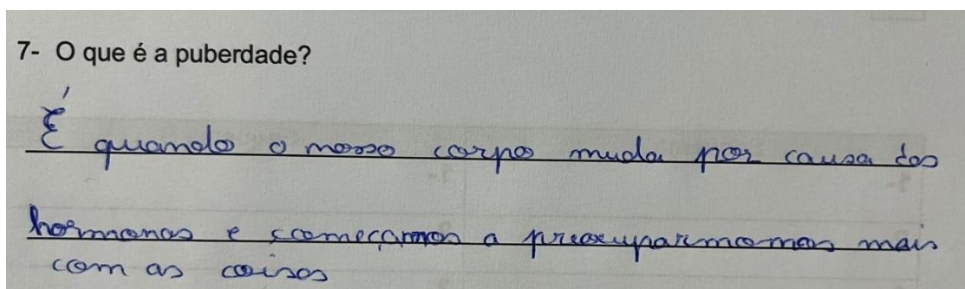 7- O que é a puberdade?
É quando o nosso corpo muda por causa dos
hormonas e scomeçamos a preocuparmomos mais
com as coisas